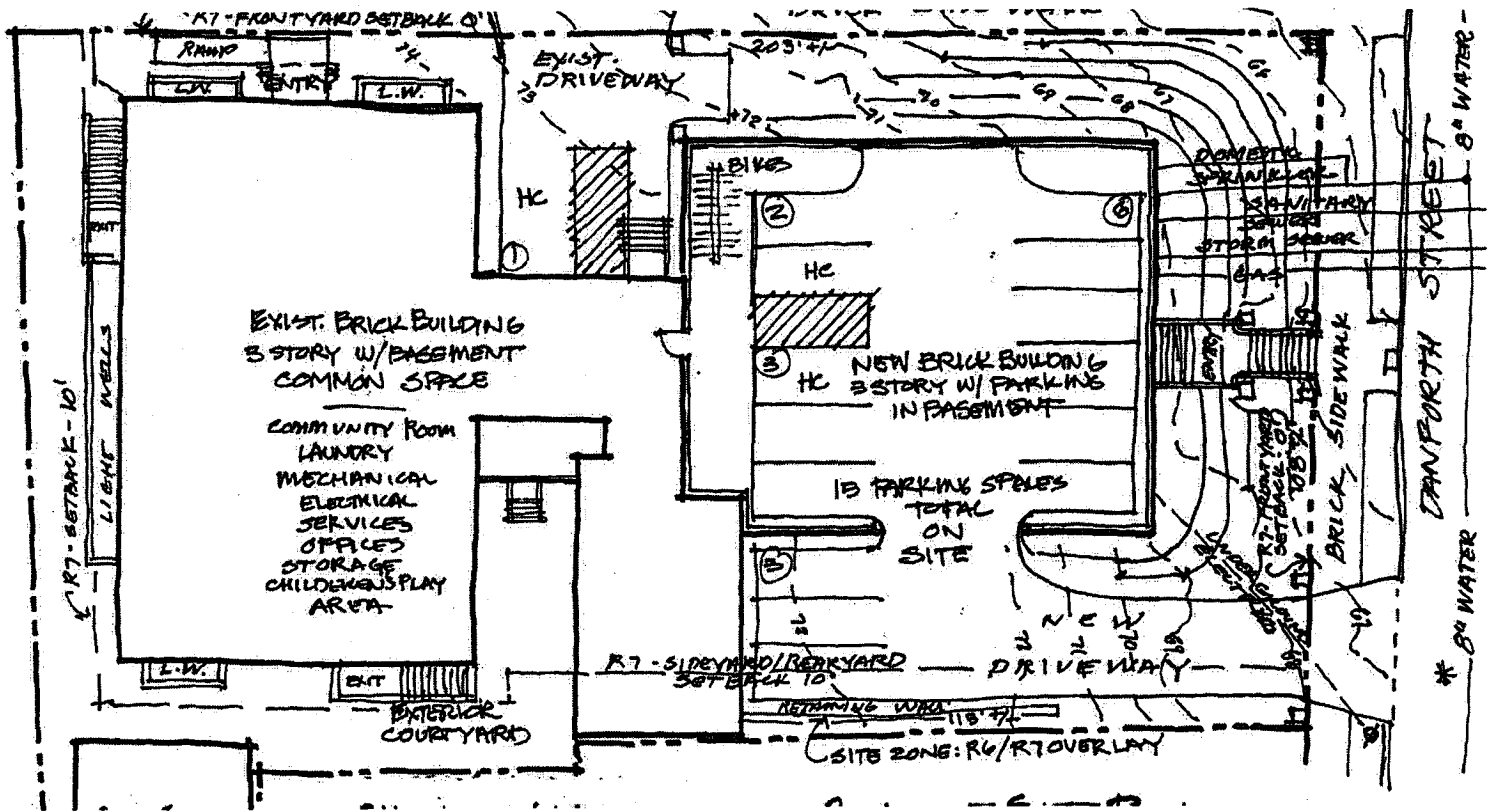 R7-FRONTYARD SETBACK 0'
RAMP
ENTRY
L.W.
L.W.
74
73
EXIST.
DRIVEWAY
203' +/-
+72
71
70
69
68
67
HC
1
BIKES
2
HC
3
HC
DOMESTIC
SPRINKLER
SANITARY
SEWER
STORM SEWER
GAS
ENTRY
EXIT
LIGHT WELLS
R7-SETBACK-10'
EXIST. BRICK BUILDING
3 STORY W/BASEMENT
COMMON SPACE
COMMUNITY ROOM
LAUNDRY
MECHANICAL
ELECTRICAL
SERVICES
OFFICES
STORAGE
CHILDRENS PLAY
AREA
NEW BRICK BUILDING
3 STORY W/ PARKING
IN BASEMENT
13 PARKING SPACES
TOTAL
ON
SITE
13
R7-FRONTYARD
SETBACK: 0'
BRICK SIDEWALK
DANFORTH STREET
8" WATER
* 8" WATER
NEW
DRIVEWAY
72
71
70
69
61
R7-SIDEYARD/REARYARD
SETBACK 10'
RETAINING WALL
118' +/-
SITE ZONE: R6/R7 OVERLAY
L.W.
EXIT
EXTERIOR
COURTYARD